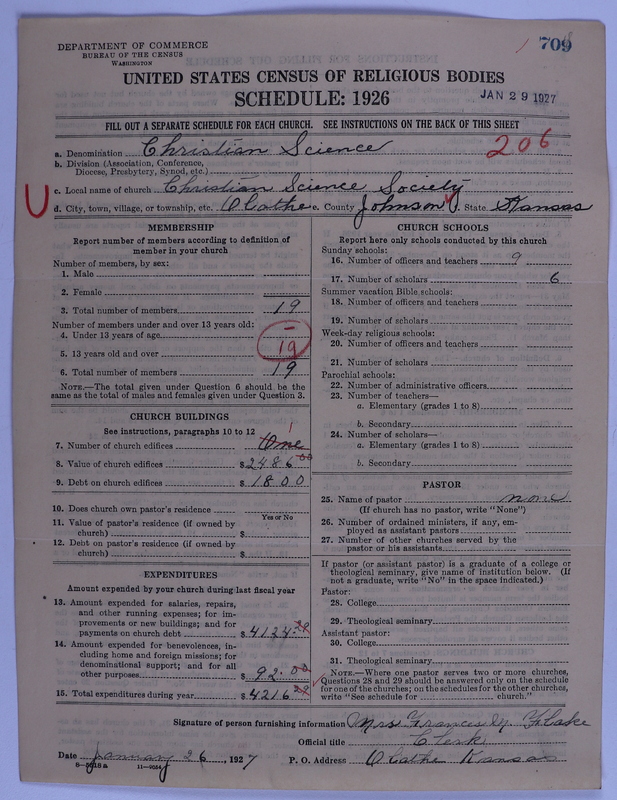 709
DEPARTMENT OF COMMERCE
BUREAU OF THE CENSUS
WASHINGTON
UNITED STATES CENSUS OF RELIGIOUS BODIES
SCHEDULE: 1926
JAN 29 1927
FILL OUT A SEPARATE SCHEDULE FOR EACH CHURCH. SEE INSTRUCTIONS ON THE BACK OF THIS SHEET
a. Denomination Christian Science
206
b. Division (Association, Conference,
Diocese, Presbytery, Synod, etc.)
c. Local name of church Christian Science Society
U
d. City, town, village, or township, etc. Olathe e. County Johnson f. State Kansas
MEMBERSHIP
Report number of members according to definition of
member in your church
Number of members, by sex:
1. Male
2. Female
3. Total number of members 19
Number of members under and over 13 years old:
4. Under 13 years of age –
5. 13 years old and over 19
6. Total number of members 19
NOTE.—The total given under Question 6 should be the
same as the total of males and females given under Question 3.
CHURCH BUILDINGS
See instructions, paragraphs 10 to 12
7. Number of church edifices One 1
8. Value of church edifices $2486.00
9. Debt on church edifices $1800
10. Does church own pastor's residence
Yes or No
11. Value of pastor's residence (if owned by
church) $
12. Debt on pastor's residence (if owned by
church) $
EXPENDITURES
Amount expended by your church during last fiscal year
13. Amount expended for salaries, repairs,
and other running expenses; for im-
provements or new buildings; and for
payments on church debt $4124.
14. Amount expended for benevolences, in-
cluding home and foreign missions; for
denominational support; and for all
other purposes $92.00
15. Total expenditures during year $4216
CHURCH SCHOOLS
Report here only schools conducted by this church
Sunday schools:
16. Number of officers and teachers 9
17. Number of scholars 6
Summer vacation Bible schools:
18. Number of officers and teachers
19. Number of scholars
Week-day religious schools:
20. Number of officers and teachers
21. Number of scholars
Parochial schools:
22. Number of administrative officers
23. Number of teachers—
a. Elementary (grades 1 to 8)
b. Secondary
24. Number of scholars—
a. Elementary (grades 1 to 8)
b. Secondary
PASTOR
25. Name of pastor none
(If church has no pastor, write "None")
26. Number of ordained ministers, if any, em-
ployed as assistant pastors
27. Number of other churches served by the
pastor or his assistants
If pastor (or assistant pastor) is a graduate of a college or
theological seminary, give name of institution below. (If
not a graduate, write "No" in the space indicated.)
Pastor:
28. College
29. Theological seminary
Assistant pastor:
30. College
31. Theological seminary
NOTE.—Where one pastor serves two or more churches,
Questions 28 and 29 should be answered only on the schedule
for one of the churches; on the schedules for the other churches,
write "See schedule for church."
Signature of person furnishing information Mrs Frances M. Flake
Official title Clerk
Date January 26, 1927 P. O. Address Olathe Kansas
11—9054